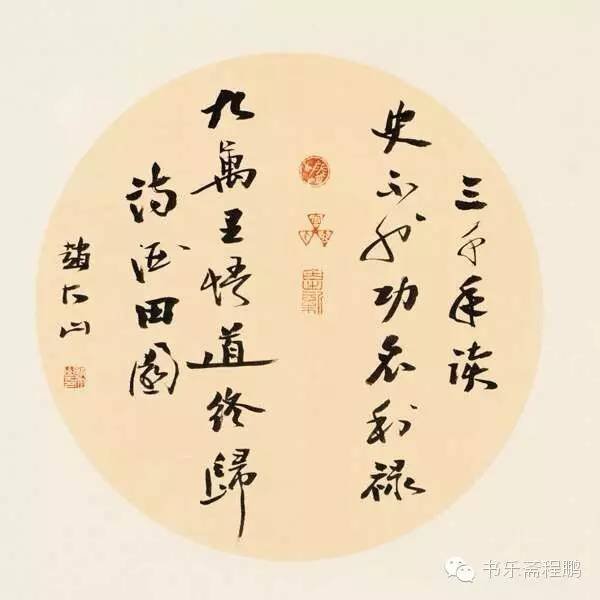 三千年读
史不外功名利禄
九萬里悟道终歸
诗酒田園
趙山
书乐斋程鹏